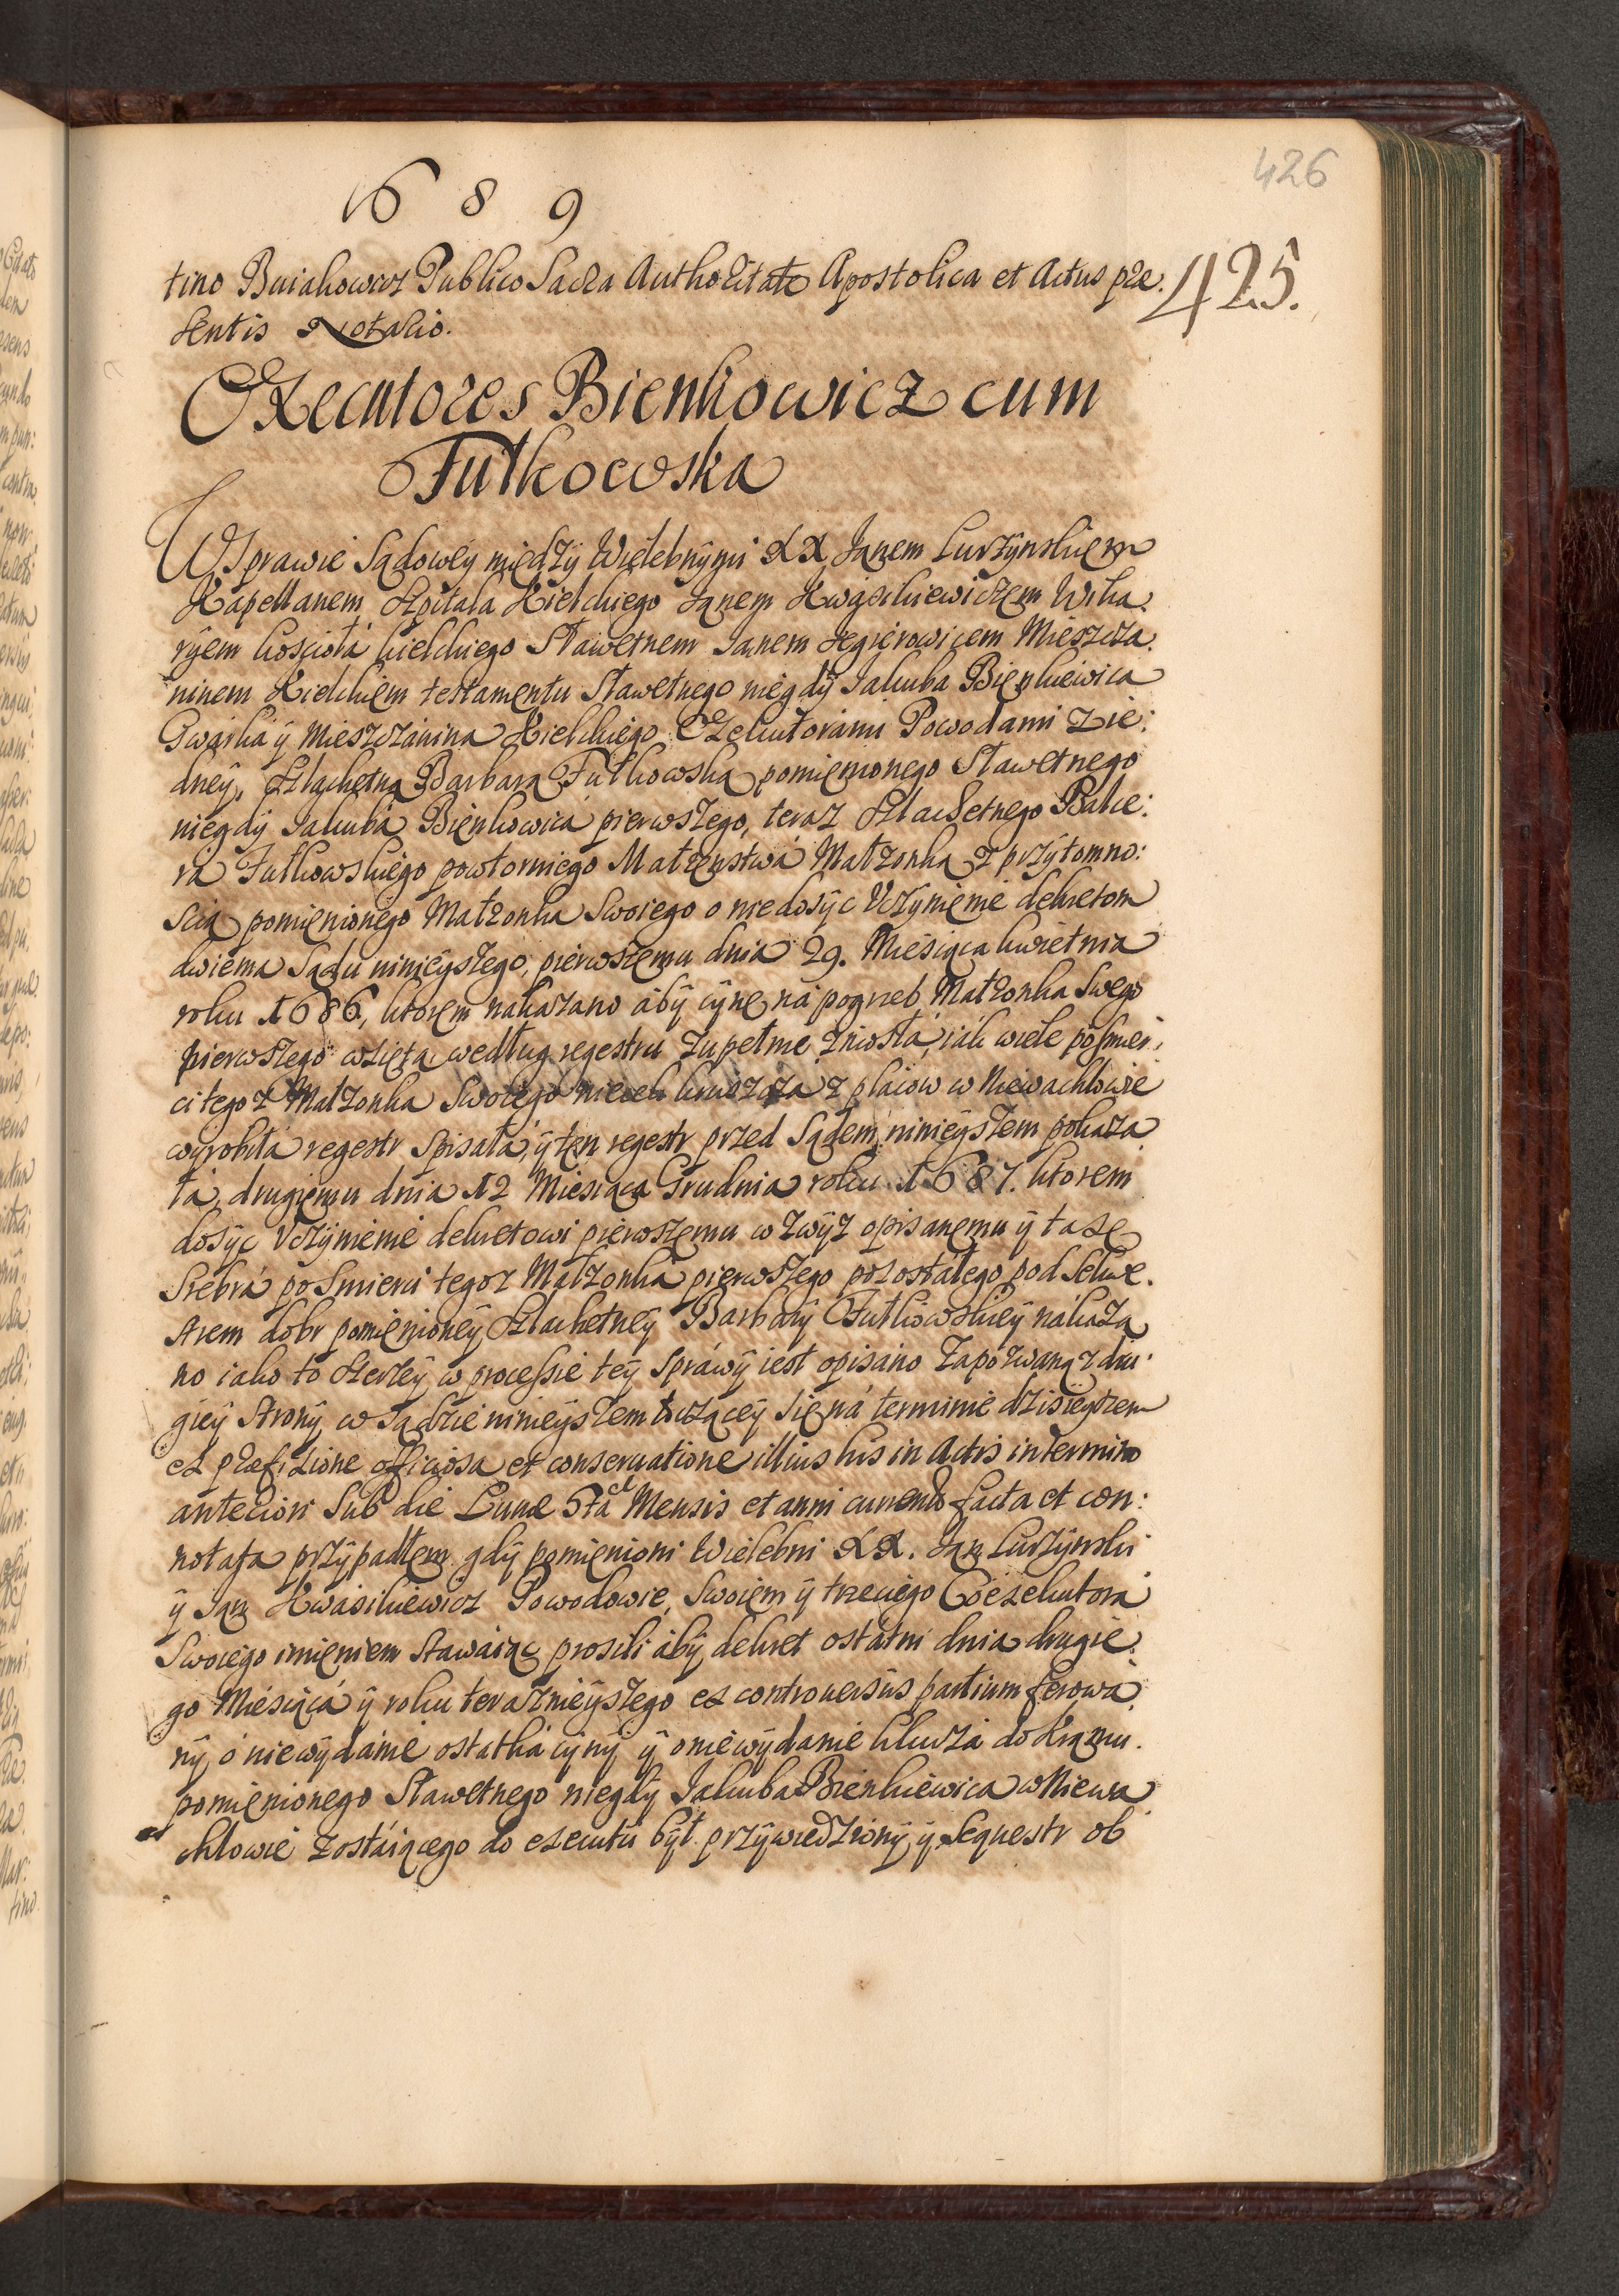 426
1689
425.
tino Buiakowicz Publico Sacra Authoritate Apostolica et Actus præ.
sentis Notario.
Execulores Bienkowicz cum
Futkowska
W Sprawie Sądowey między Wielebnymi XX Janem Curzynskiem
Kapellanem Szpitala Kielckiego Janem Kwasikiewiczem Wika.
ryem kosciołá kielckiego Sławetnem Janem Segierowicem Mieszcza.
ninem Kielckiem testamentu Sławetnego niegdy Jakuba Bienkiewica
Gwarka y Mieszczánina Kielckiego Exekutorámi Powodami z ie:
dney, Szlachetną Barbarą Futkowską pomienionego Sławetnego
niegdy Jakubá Bienkowicá pierwszego, teraz Szlachetnego Balce:
ra Futkowskiego powtorniego Małzenstwá Małzonką z przytomno:
scią pomienionego Małzonka Swoiego o niedosyc Vczynienie dekretom
dwiema Sądu ninieyszego, pierwszemu dnia 29. Miesiąca kwietnia
roku 1686, ktorem nakazano áby cynę ná pogrzeb Małzonka Swego
pierwszego wziętą według regestru zupełnie zniosłá, iák wiele posmier.
ci tegoz Małzonka Swoiego niecek kruszcza z płaiow w Niewachlowie
wyrobiłá regestr Spisałá, y ten regestr przed Sądem ninieyszem pokaza
łá, drugiemu dnia 12 Miesiąca Grudnia roku 1687. ktorem
dosyc Vczynienie dekretowi pierwszemu w zwyz opisanemu y taxę
Srebrá po Smierci tegoz Małzonká pierwszego pozostáłego pod Sekwe.
strem dobr pomienioney Szlachetney Barbáry Futkowskiey nákaza
no iako to Szerzey w processie tey Spráwy iest opisáno Zapozwaną z dru.
giey Strony w Sądzie ninieyszem toczącey się ná terminie dzisieyszem
ex præfixione officiosa et conseruatione illius his in Actis in termino
anteriori Sub die Lunæ 5ta Mensis et anni currentis facta et con:
notata przypadłem gdy pomienioni Wielebni XX. Jan Curzynski
y Jan Kwasikiewicz Powodowie, Swoiem y trzeciego Coexekutora
Swoiego imieniem Stawáiąc prosili áby dekret ostátni dnia drugie.
go Miesiącá y roku teraznieyszego ex controuersiis partium ferowá
ny, o niewydánie ostatká cyny y o niewydanie klucza do Kramu.
pomienionego Sławetnego niegdy Jakuba Bienkiewica w Niewa
chlowie zostáiącego do exekutii był przywiedziony, y Sequestr ob